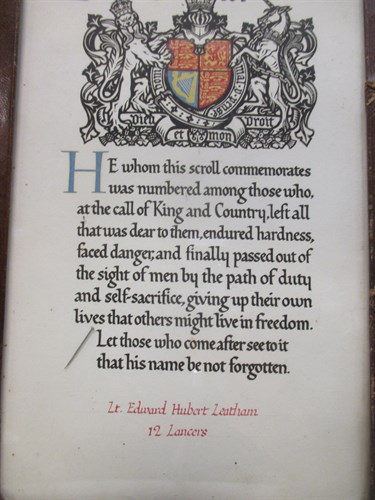 Dieu et mon Droit
HE whom this scroll commemorates
was numbered among those who,
at the call of King and Country, left all
that was dear to them, endured hardness,
faced danger, and finally passed out of
the sight of men by the path of duty
and self-sacrifice, giving up their own
lives that others might live in freedom.
Let those who come after see to it
that his name be not forgotten.
Lt. Edward Hubert Leatham
12 Lancers